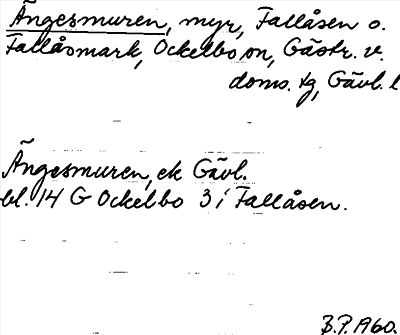 Ängesmuren, myr, Fallåsen o.
Fallåsmark, Ockelbo sn, Gästr. v.
doms. tg, Gävl. l
Ängesmuren, ek Gävl.
bl. 14 G Ockelbo 3 i Fallåsen.
B.P. 1960.